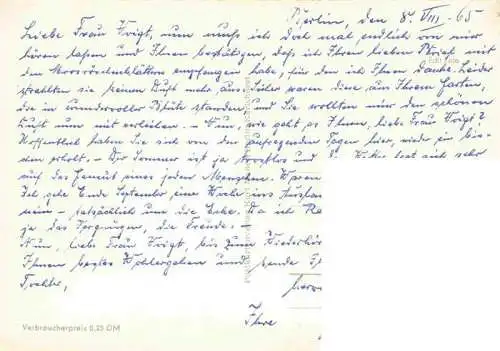 Berlin, den 8. VIII. 65
Liebe Frau Voigt, nun muß ich doch mal endlich von mir
hören lassen und Ihnen bestätigen, daß ich Ihren lieben Brief mit
den Moosröschenblättern empfangen habe, für den ich Ihnen danke. Leider
strahlten sie keinen Duft mehr aus. Sicher waren diese aus Ihrem Garten,
die in wundervoller Blüte standen und Sie wollten mir den schönen
Duft nun mit verleihen. – Nun, wie geht es Ihnen, liebe Frau Voigt?
Hoffentlich haben Sie sich von den aufregenden Tagen hier, wieder ein bis-
chen erholt. – Der Sommer ist ja trostlos und
auf das Gemüt eines jeden Menschen. Waren
Ich gehe Ende September eine Woche ins Ausland
nein – tatsächlich um die Ecke. Da ich
ja das Vergnügen, die Freude. –
Nun, liebe Frau Voigt, bis zum Wiederhören
Ihnen bestes Wohlergehen und sende
Tochter,
Ihre
Verbraucherpreis 0,25 DM